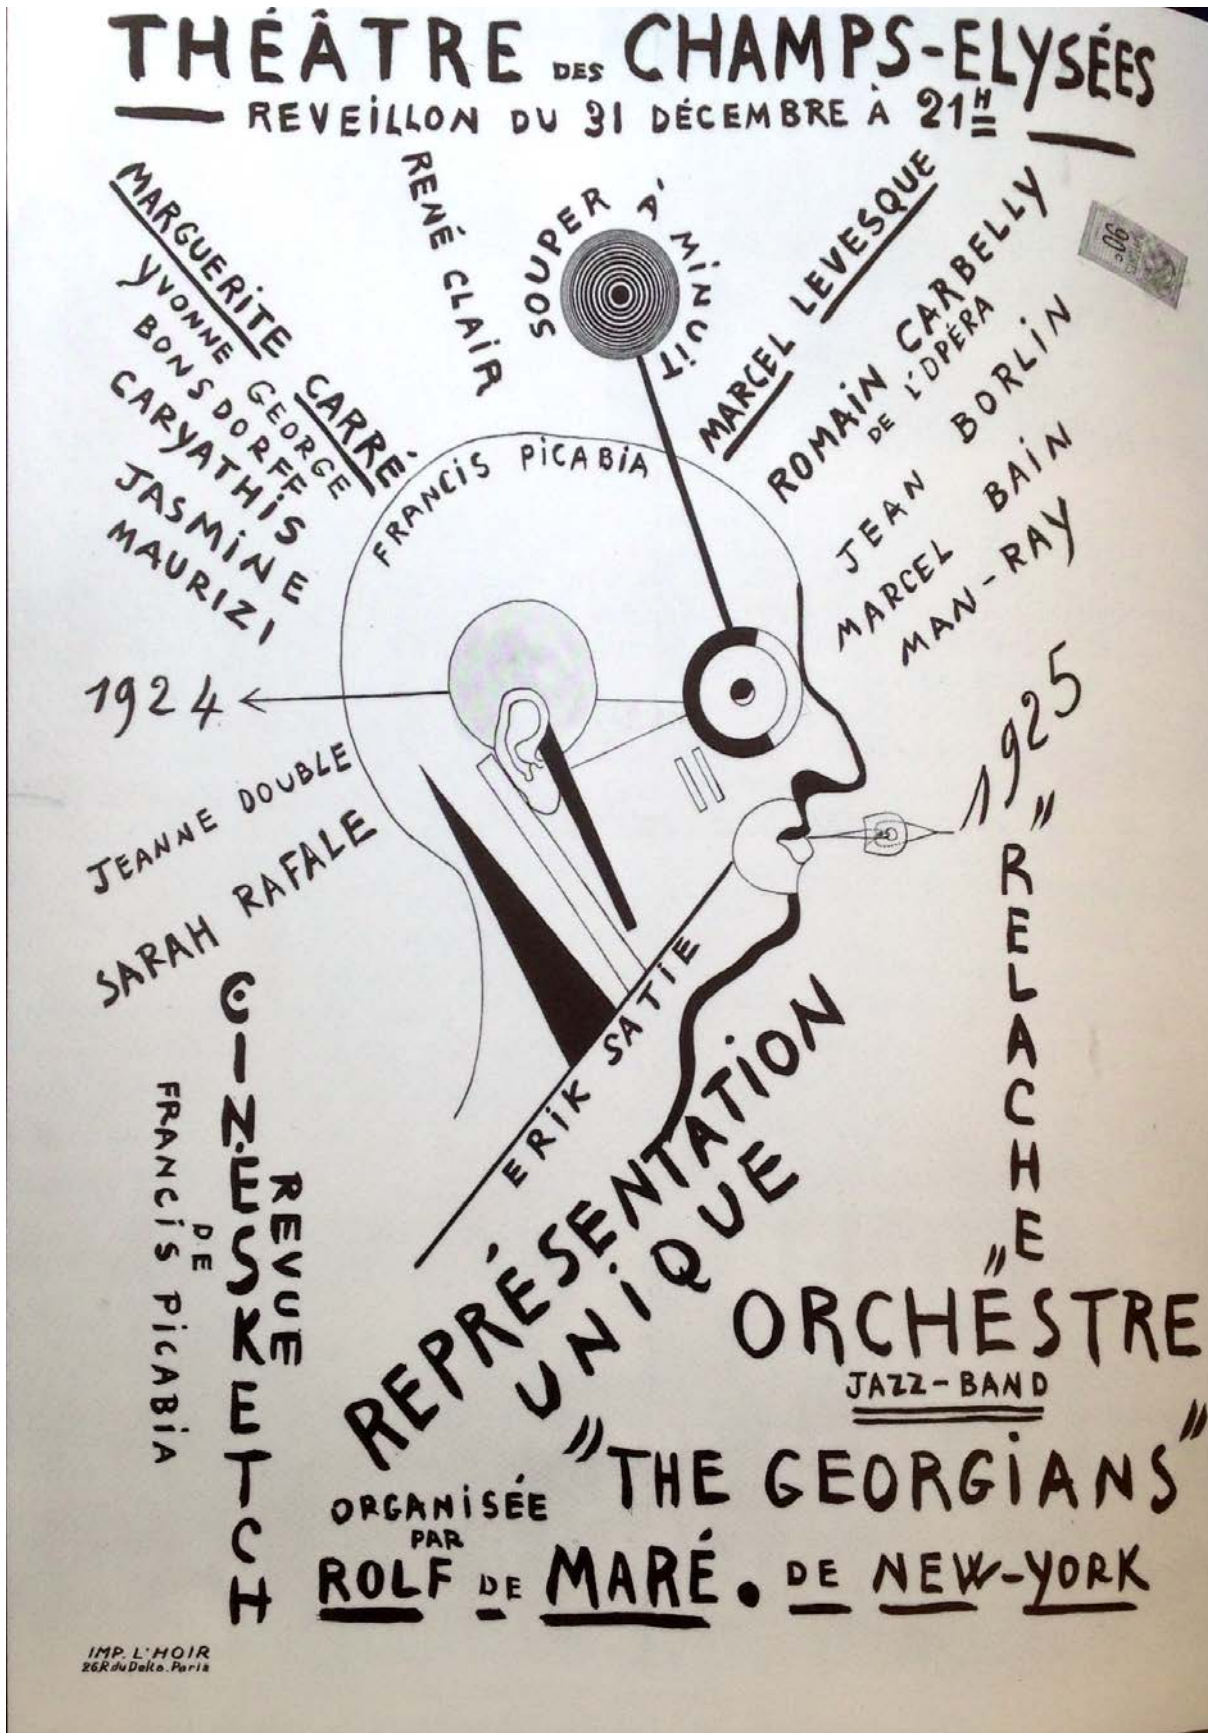 THÉÂTRE DES CHAMPS-ELYSÉES
REVEiLLON DU 31 DÉCEMBRE À 21H
MARGUERiTE CARRÉ
YVONNE GEORGE
BONSDORFF
CARYATHiS
JASMiNE
MAURIZI
RENÉ CLAiR
SOUPER À MiNUiT
MARCEL LEVESQUE
ROMAiN CARBELLY
DE L'OPÉRA
JEAN BORLiN
MARCEL BAiN
MAN-RAY
FRANCiS PiCABiA
1924
1925
JEANNE DOUBLE
SARAH RAFALE
"RELACHE"
ERiK SATiE
CINÉSKETCH
REVUE
DE
FRANCiS PiCABiA
REPRÉSENTATiON
UNiQUE
ORCHESTRE
JAZZ-BAND
"THE GEORGiANS"
DE NEW-YORK
ORGANiSÉE
PAR
ROLF DE MARÉ.
90c
IMP. L'HOIR
26 R du Delta. Paris